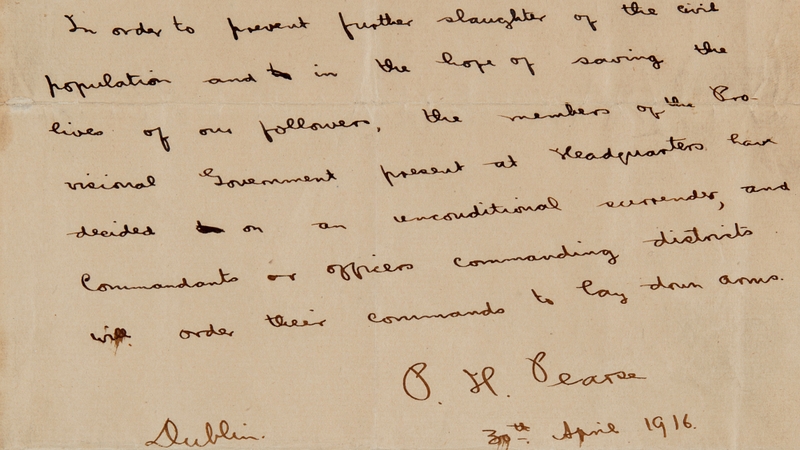 In order to prevent further slaughter of the civil
population and in the hope of saving the
lives of our followers, the members of the Pro-
visional Government present at Headquarters have
decided on an unconditional surrender, and
Commandants or officers commanding districts
will order their commands to lay down arms.
P. H. Pearse
Dublin. 30th April 1916.